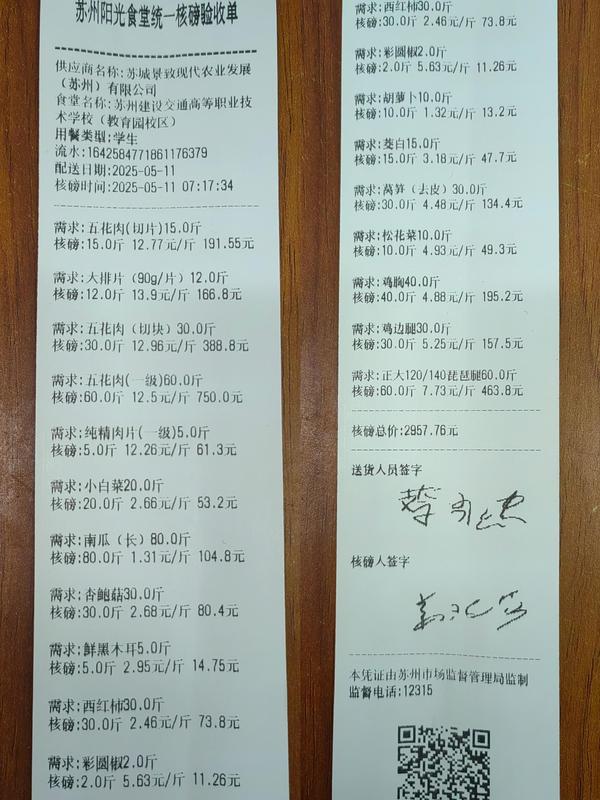 苏州阳光食堂统一核磅验收单
供应商名称:苏城景致现代农业发展
（苏州）有限公司
食堂名称:苏州建设交通高等职业技
术学校（教育园校区）
用餐类型:学生
流水:1642584771861176379
配送日期:2025-05-11
核磅时间:2025-05-11 07:17:34
需求:五花肉(切片)15.0斤
核磅:15.0斤 12.77元/斤 191.55元
需求:大排片（90g/片）12.0斤
核磅:12.0斤 13.9元/斤 166.8元
需求:五花肉（切块）30.0斤
核磅:30.0斤 12.96元/斤 388.8元
需求:五花肉(一级)60.0斤
核磅:60.0斤 12.5元/斤 750.0元
需求:纯精肉片(一级)5.0斤
核磅:5.0斤 12.26元/斤 61.3元
需求:小白菜20.0斤
核磅:20.0斤 2.66元/斤 53.2元
需求:南瓜（长）80.0斤
核磅:80.0斤 1.31元/斤 104.8元
需求:杏鲍菇30.0斤
核磅:30.0斤 2.68元/斤 80.4元
需求:鲜黑木耳5.0斤
核磅:5.0斤 2.95元/斤 14.75元
需求:西红柿30.0斤
核磅:30.0斤 2.46元/斤 73.8元
需求:彩圆椒2.0斤
核磅:2.0斤 5.63元/斤 11.26元
需求:西红柿30.0斤
核磅:30.0斤 2.46元/斤 73.8元
需求:彩圆椒2.0斤
核磅:2.0斤 5.63元/斤 11.26元
需求:胡萝卜10.0斤
核磅:10.0斤 1.32元/斤 13.2元
需求:茭白15.0斤
核磅:15.0斤 3.18元/斤 47.7元
需求:莴笋（去皮）30.0斤
核磅:30.0斤 4.48元/斤 134.4元
需求:松花菜10.0斤
核磅:10.0斤 4.93元/斤 49.3元
需求:鸡胸40.0斤
核磅:40.0斤 4.88元/斤 195.2元
需求:鸡边腿30.0斤
核磅:30.0斤 5.25元/斤 157.5元
需求:正大120/140琵琶腿60.0斤
核磅:60.0斤 7.73元/斤 463.8元
核磅总价:2957.76元
送货人员签字
核磅人签字
本凭证由苏州市场监督管理局监制
监督电话:12315